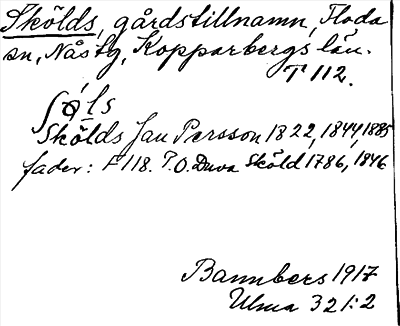 Skölds, gårdstillnamn, Floda
sn, Nås tg, Kopparbergs län.
T 112.
Skölds Jan Persson 1822, 1844, 1885
fader: F 118. P.O. Duva Sköld 1786, 1846
Bannbers 1917
Ulma 321:2